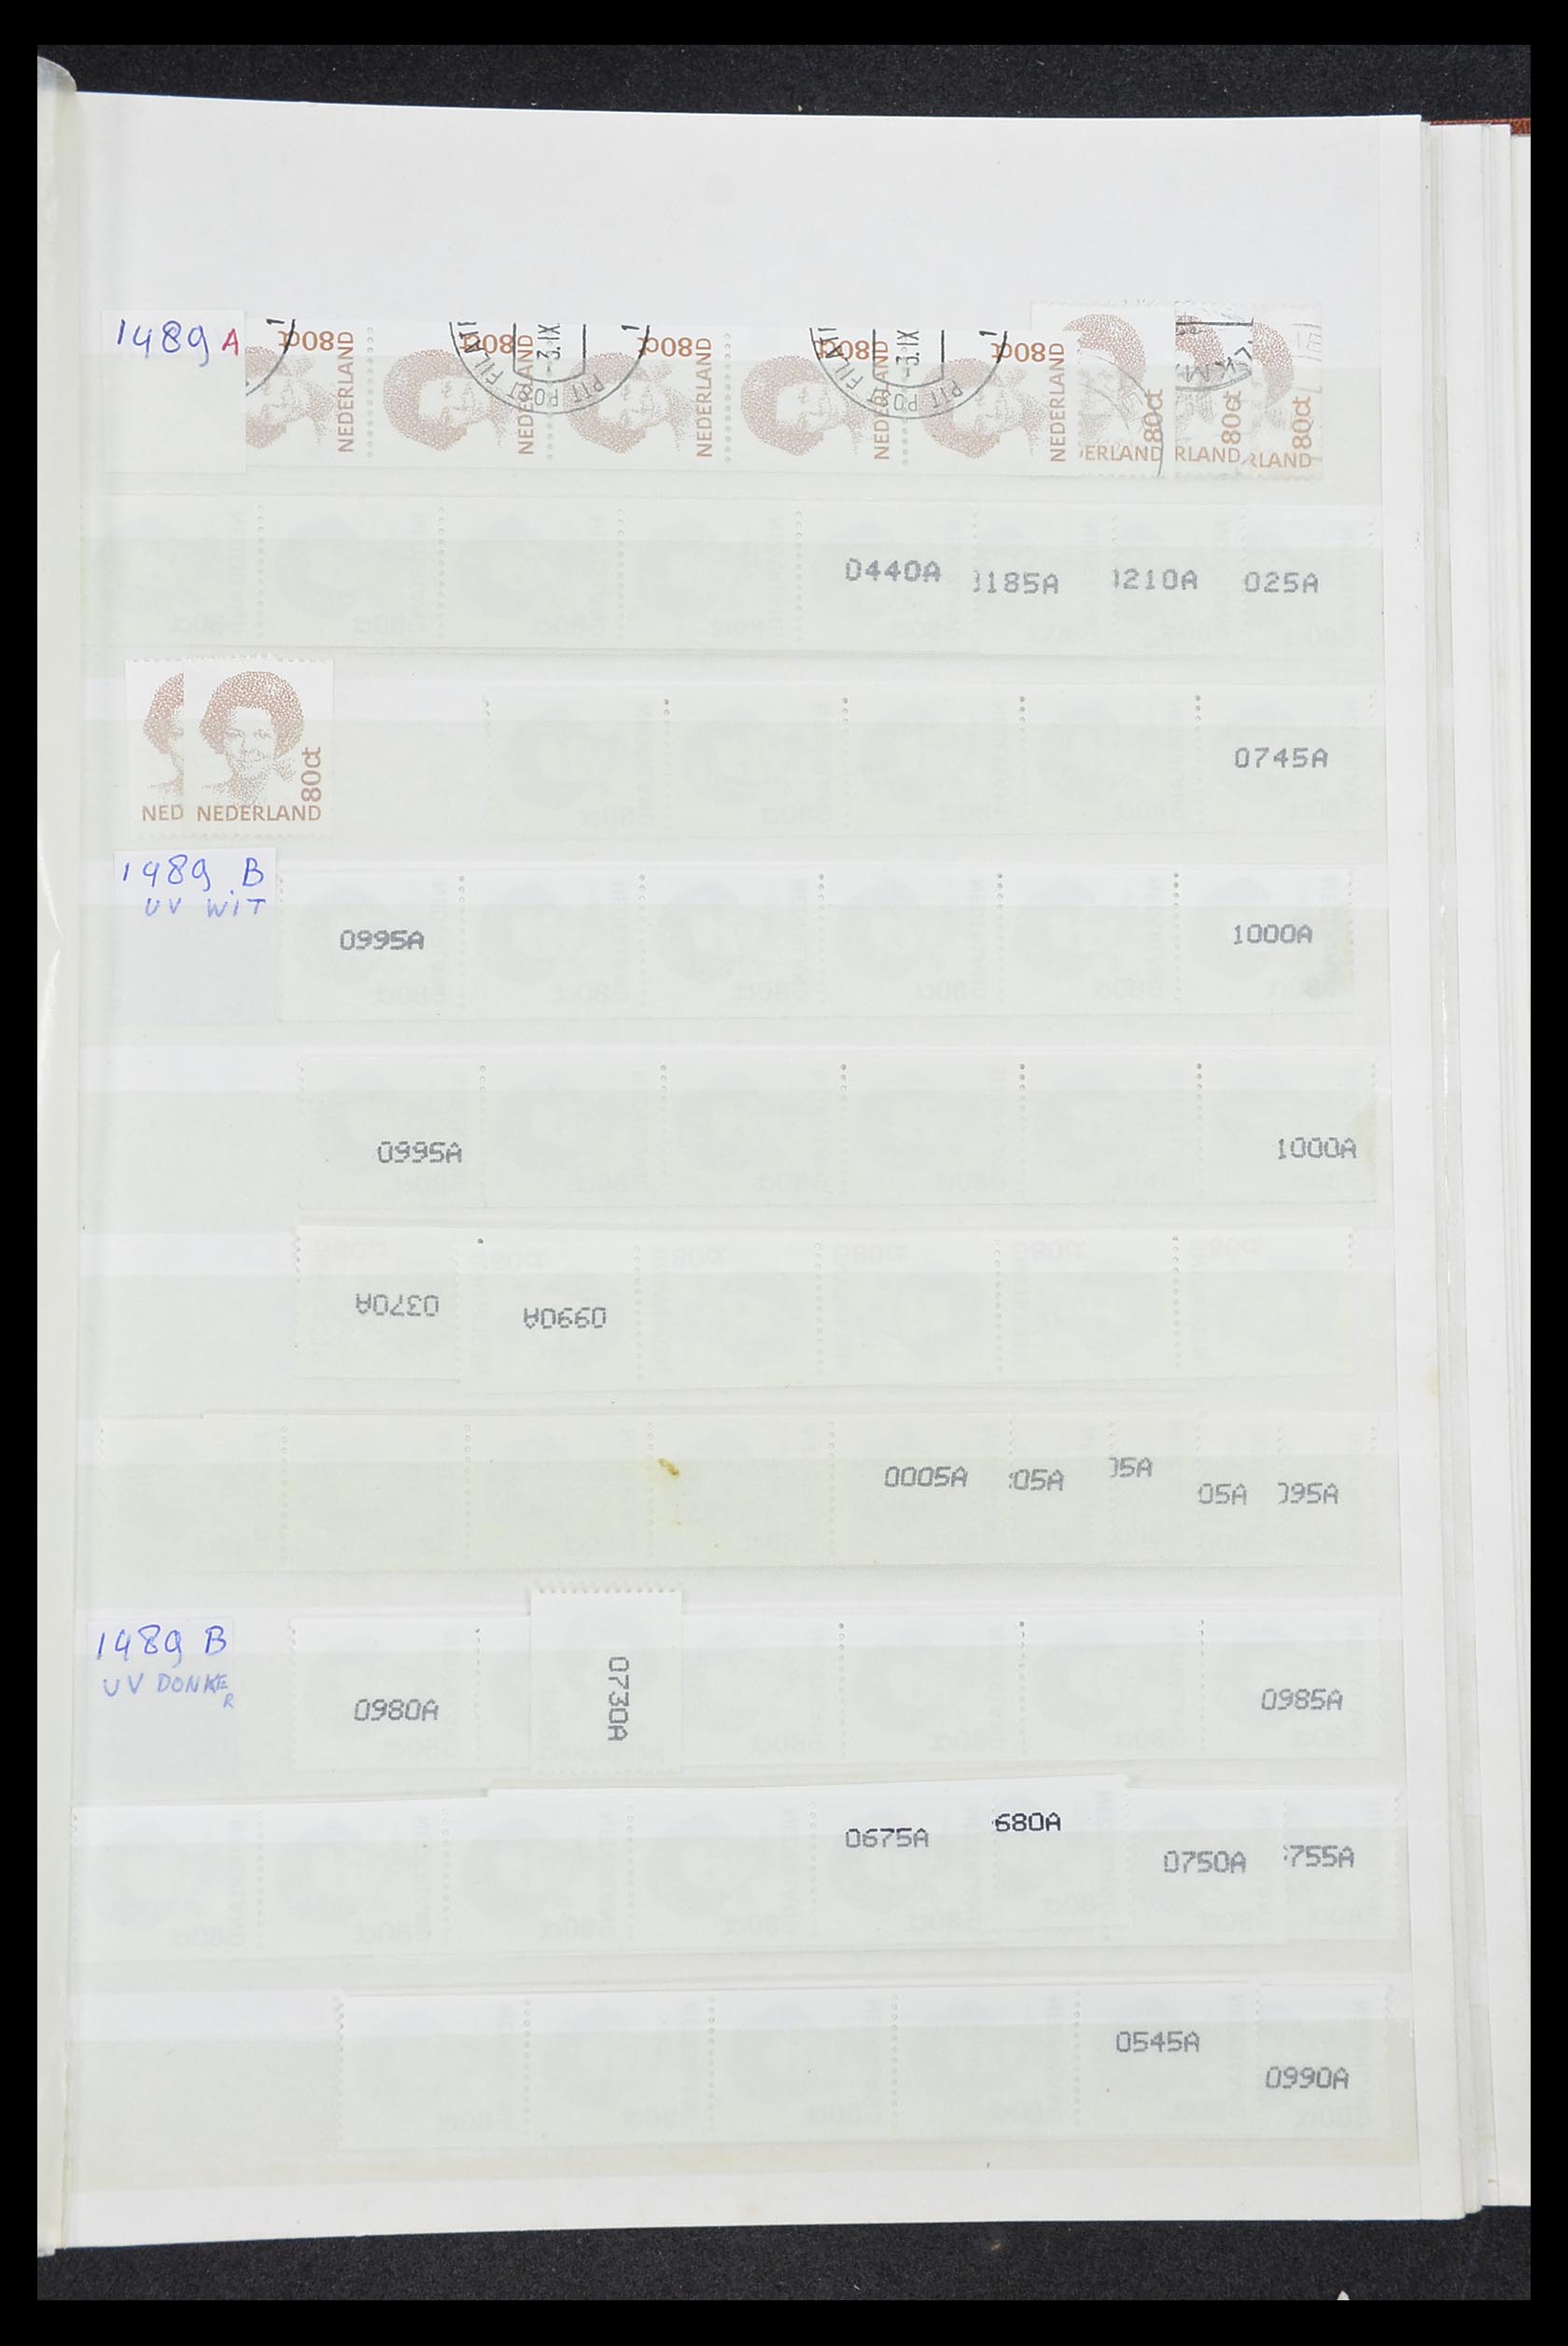 1489 A
80ct 80ct 80ct 80ct 80ct
NEDERLAND NEDERLAND NEDERLAND NEDERLAND NEDERLAND
-3.IX -3.IX
80ct 80ct 80ct
ERLAND RLAND RLAND
0440A 185A 210A 025A
80ct
NED NEDERLAND
0745A
1489 B
UV WIT
0995A 1000A
0995A 1000A
0370A 0990A
0005A 05A 5A 05A 95A
1489 B
UV DONKER
0980A 0730A 0985A
0675A 680A 0750A 755A
0545A
0990A